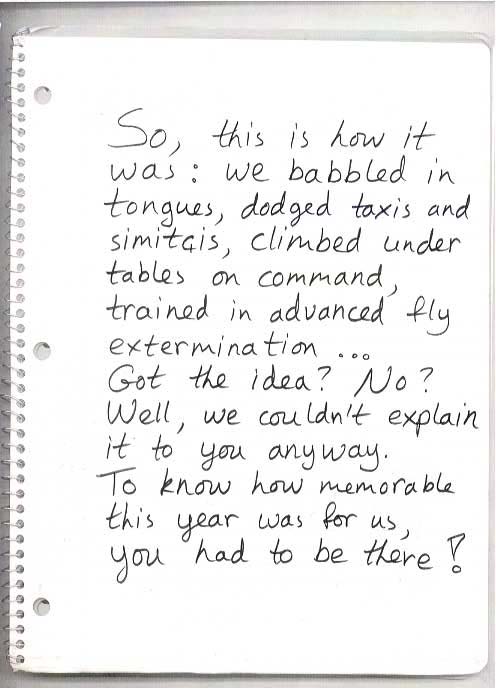 So, this is how it
was: we babbled in
tongues, dodged taxis and
simitçis, climbed under
tables on command,
trained in advanced fly
extermination ...
Got the idea? No?
Well, we couldn't explain
it to you anyway.
To know how memorable
this year was for us,
you had to be there!